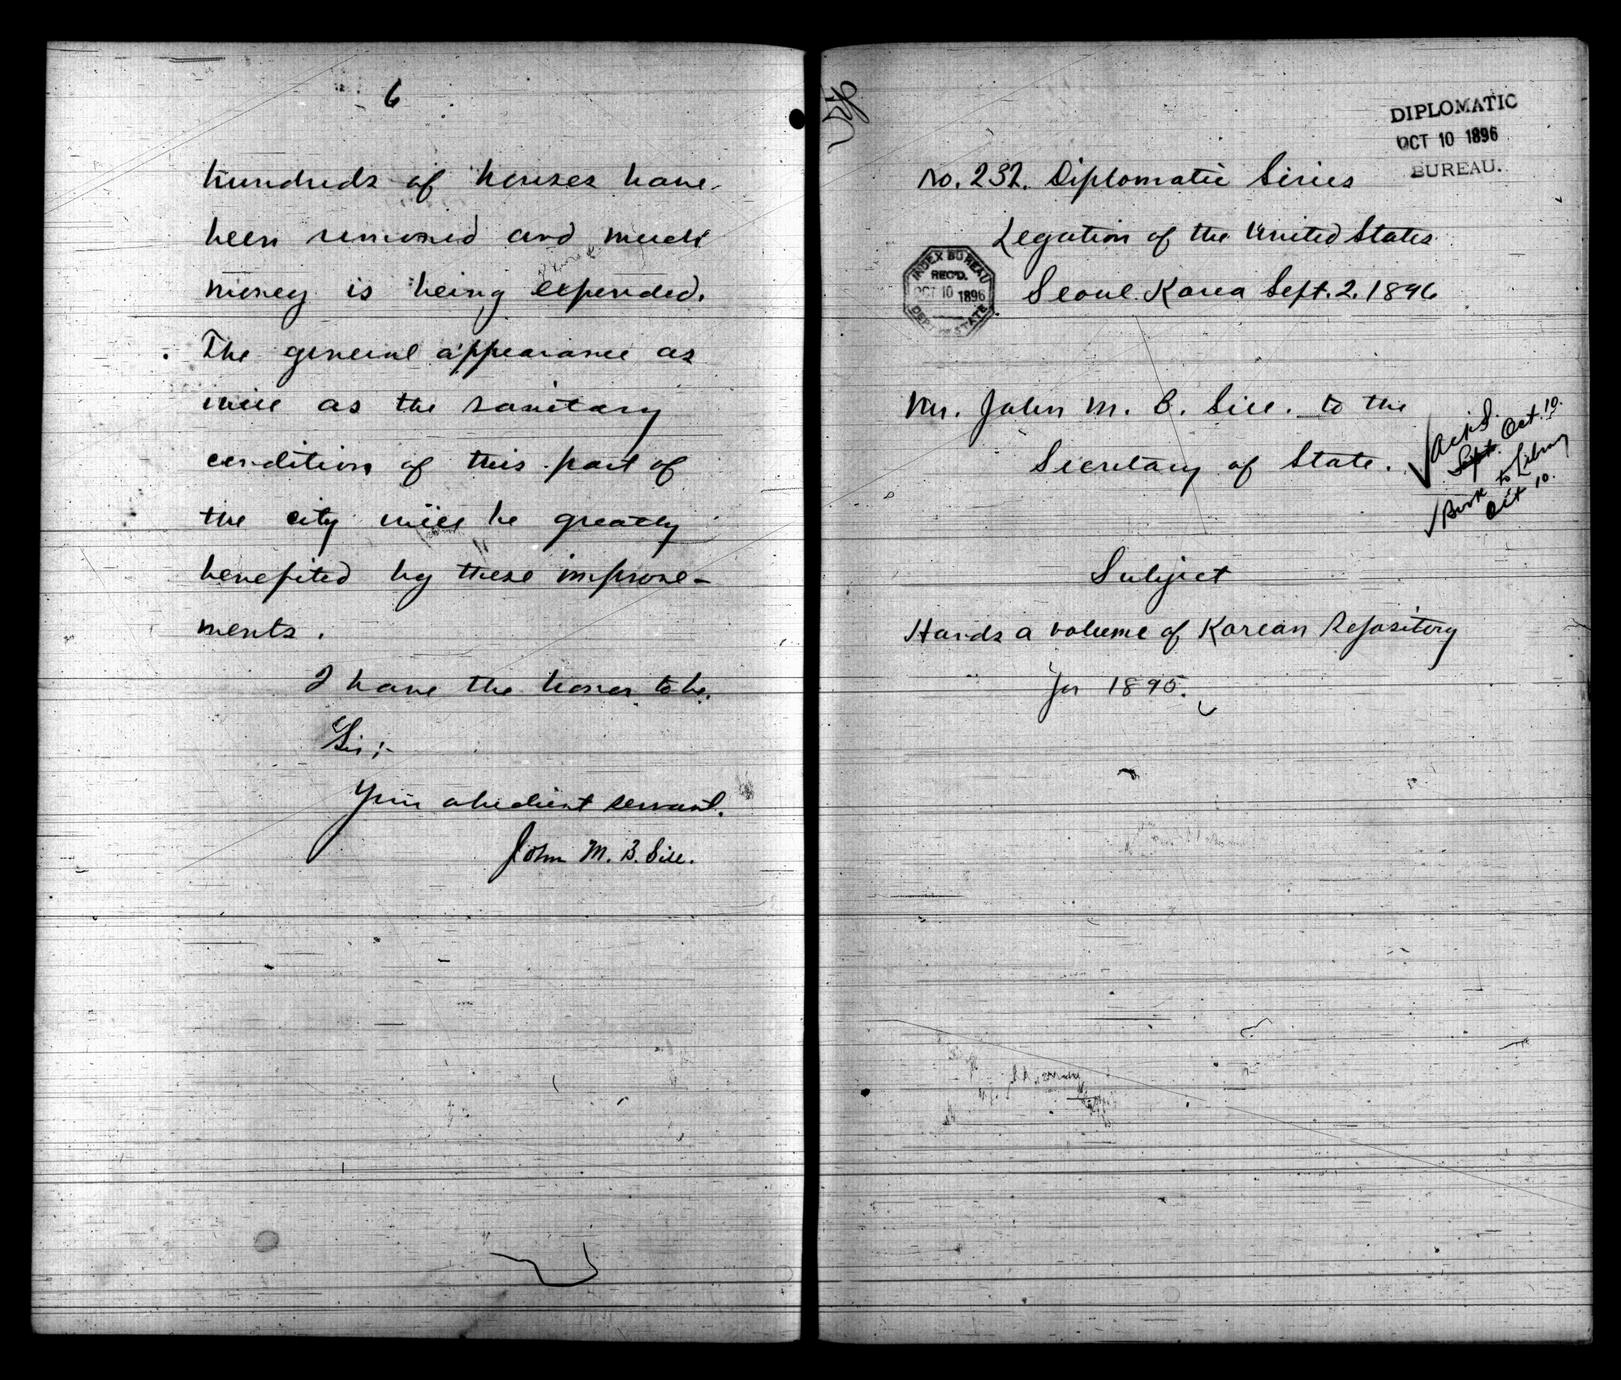 6
hundreds of houses have
been removed and much
money is being expended.
The general appearance as
well as the sanitary
condition of this part of
the city will be greatly
benefited by these improve-
ments.
I have the honor to be.
Sir;-
Your obedient servant.
John M. B. Sill.
DIPLOMATIC
OCT 10 1896
BUREAU.
No. 232. Diplomatic Series
Legation of the United States
Seoul Korea Sept. 2. 1896
INDEX BUREAU
REC'D.
OCT 10 1896
DEPT OF STATE
Mr. John M. B. Sill. to the
Secretary of State.
Ack'd.
Sept. Oct. 19.
Book to Library
Oct 10.
Subject
Hands a volume of Korean Repository
for 1895.